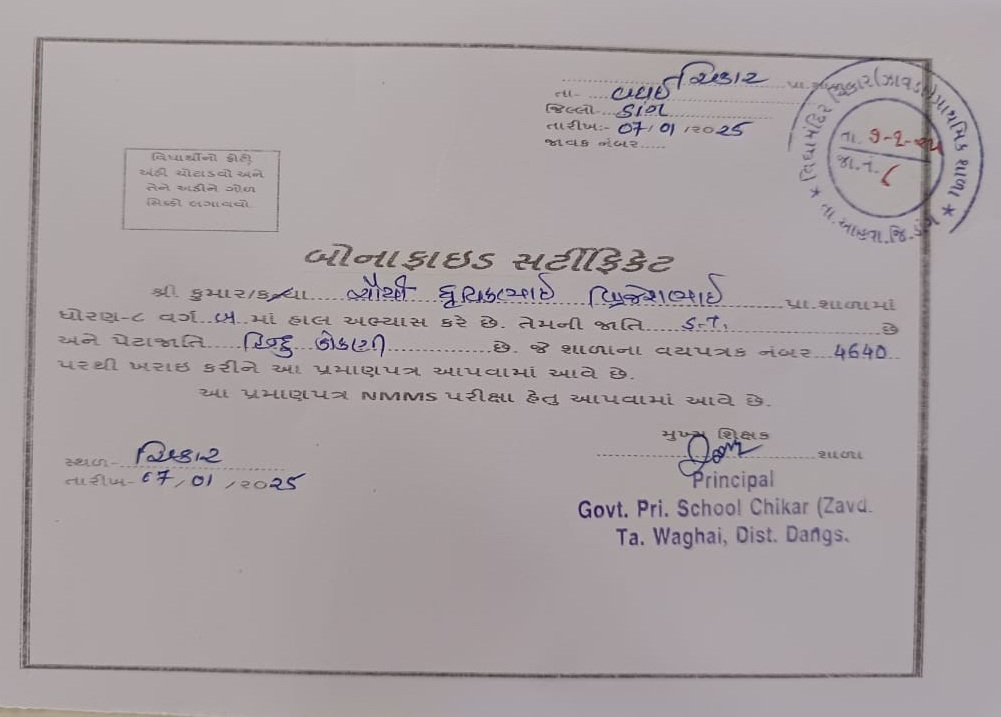 ચિકાર પ્રા.
તા- વઘઈ
જિલ્લો ડાંગ
તારીખ:- 07/01/2025
જાવક નંબર
તા. ૭-૧-૨૫
જા.નં. ૮
વિધાર્થીનો ફોટો
અહીં ચોટાડવો અને
તેને અડીને ગોળ
સિક્કો લગાવવો
બોનાફાઇડ સર્ટીફિકેટ
શ્રી કુમાર/કન્યા ચૌર્યા બ્રિજેશભાઈ પ્રા.શાળામાં
ધોરણ-૮ વર્ગ બ માં હાલ અભ્યાસ કરે છે. તેમની જાતિ S.T. છે
અને પેટાજાતિ હિન્દુ કોકણી છે. જે શાળાના વયપત્રક નંબર 4640
પરથી ખરાઇ કરીને આ પ્રમાણપત્ર આપવામાં આવે છે.
આ પ્રમાણપત્ર NMMS પરીક્ષા હેતુ આપવામાં આવે છે.
મુખ્ય શિક્ષક
સ્થળ- ચિકાર
શાળા
તારીખ- 07/01/2025
Principal
Govt. Pri. School Chikar (Zavd.
Ta. Waghai, Dist. Dangs.